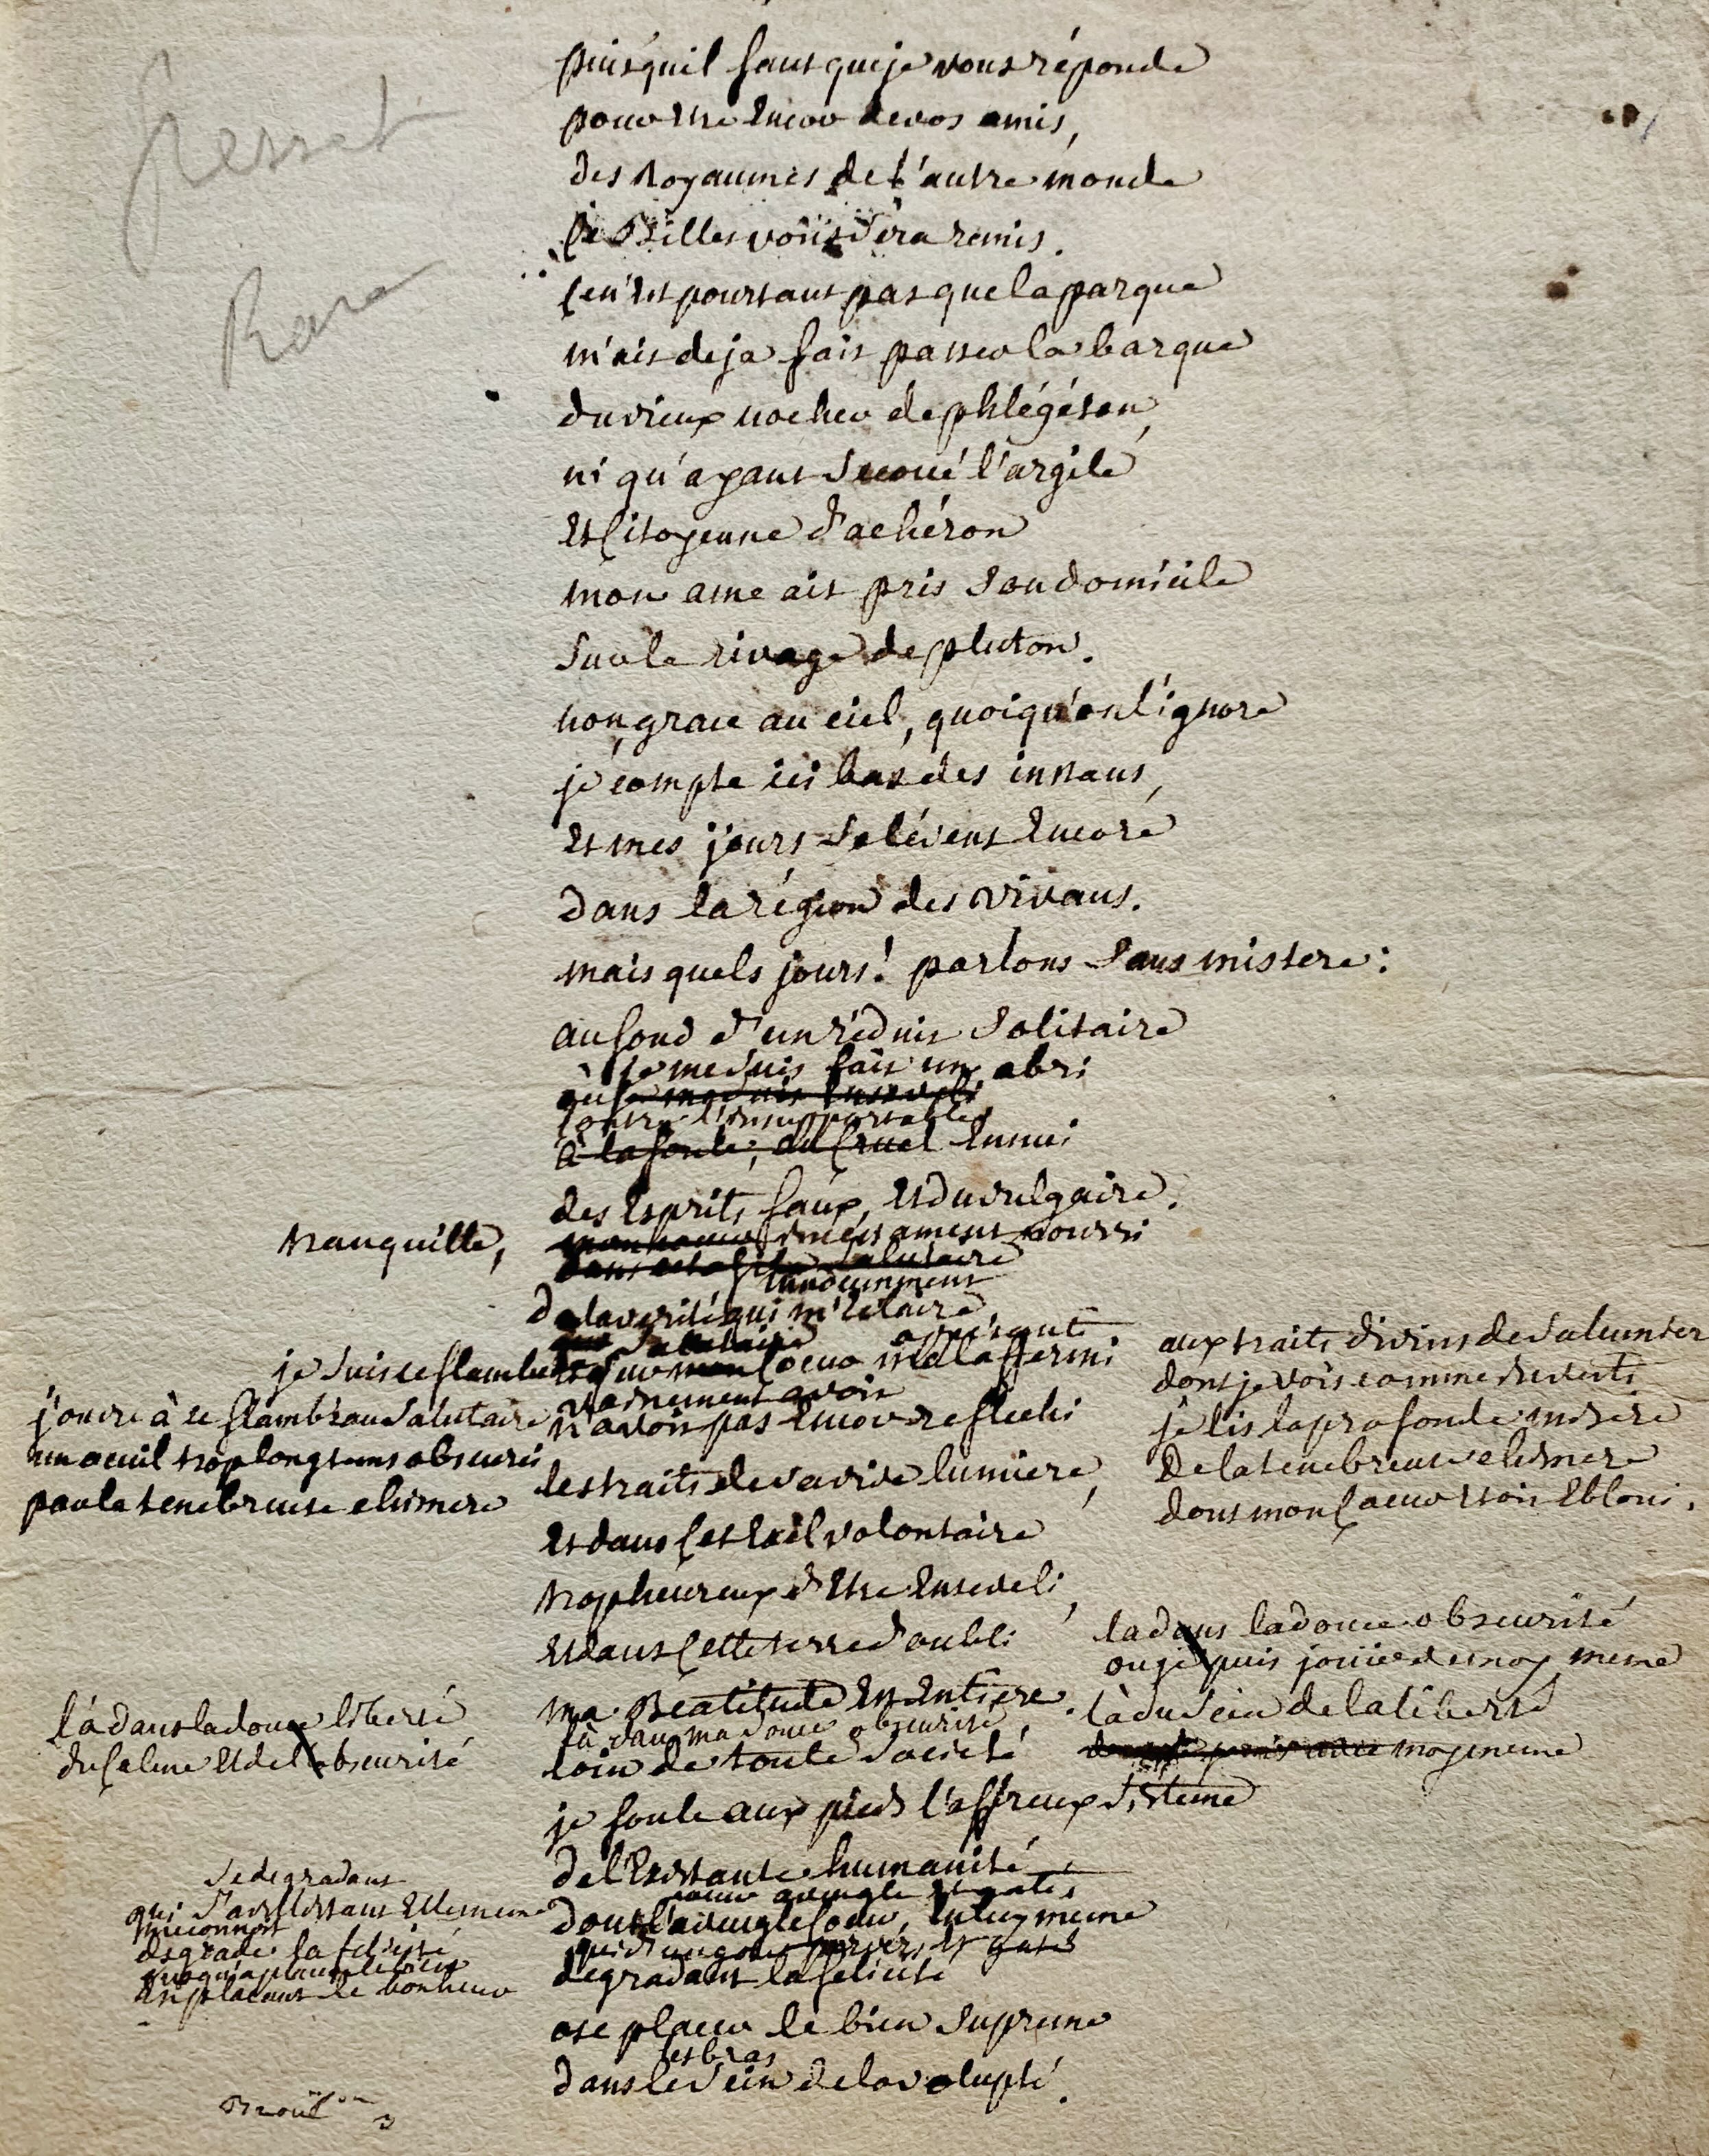 Gresset
Rare
puisqu'il faut que je vous réponde
pour être encor de vos amis,
des Royaumes de l'autre monde
Ce Billet vous sera remis.
Ce n'est pourtant pas que la parque
m'ait deja fait passer la barque
du vieux nocher de phlégéton,
ni qu'ayant secoué l'argile
et Citoyenne d'achéron
mon ame ait pris son domicile
sur le rivage de pluton.
non, grace au ciel, quoiqu'on l'ignore
je compte ici bas des instans,
et mes jours se lévent encore
dans la région des vivans.
mais quels jours! parlons sans mistere:
au fond d'un réduit solitaire
je me suis fait un abri
où je me suis enseveli
contre l'insupportable
à la foule, au Cruel ennui
des esprits faux, et du vulgaire.
tranquille,
dans cet asile salutaire
De la verité qui m'eclaire
je suis ce flambeau
n'avoit pas encor reflechi
les traits de sa vive lumiere,
j'ouvre à ce flambeau salutaire
un oeuil trop longtems obscurci
par la tenebreuse chimere
aux traits divins de sa lumiere
dont je vois
je lis la profonde misere
De la tenebreuse chimere
dont mon Coeur etoit ebloui.
et dans Cet exil volontaire
trop heureux d'être enseveli,
et dans Cette terre d'oubli
ma Beatitude est entiere
là dans ma douce obscurité,
loin de toute societé
la dans la douce obscurité
ou je puis joüir de moy meme
là du sein de la liberté
moy meme
là dans la douce liberté
du Calme et de l'obscurité
je foule aux pieds l'affreux sisteme
de l'existante humanité
coeur aveugle et gaté,
dont l'aveugle Coeur,
degradant la felicité
ose placer le bien supreme
les bras
dans le sein de la volupté.
se degradant
qui s'avilissant elle meme
meconnoit
degrade la felicité
en plaçant le bonheur